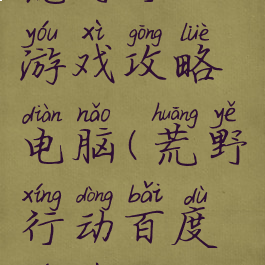 yóu xì gōng lüè
游戏攻略
diàn nǎo huāng yě
电脑(荒野
xíng dòng bǎi dù
行动百度